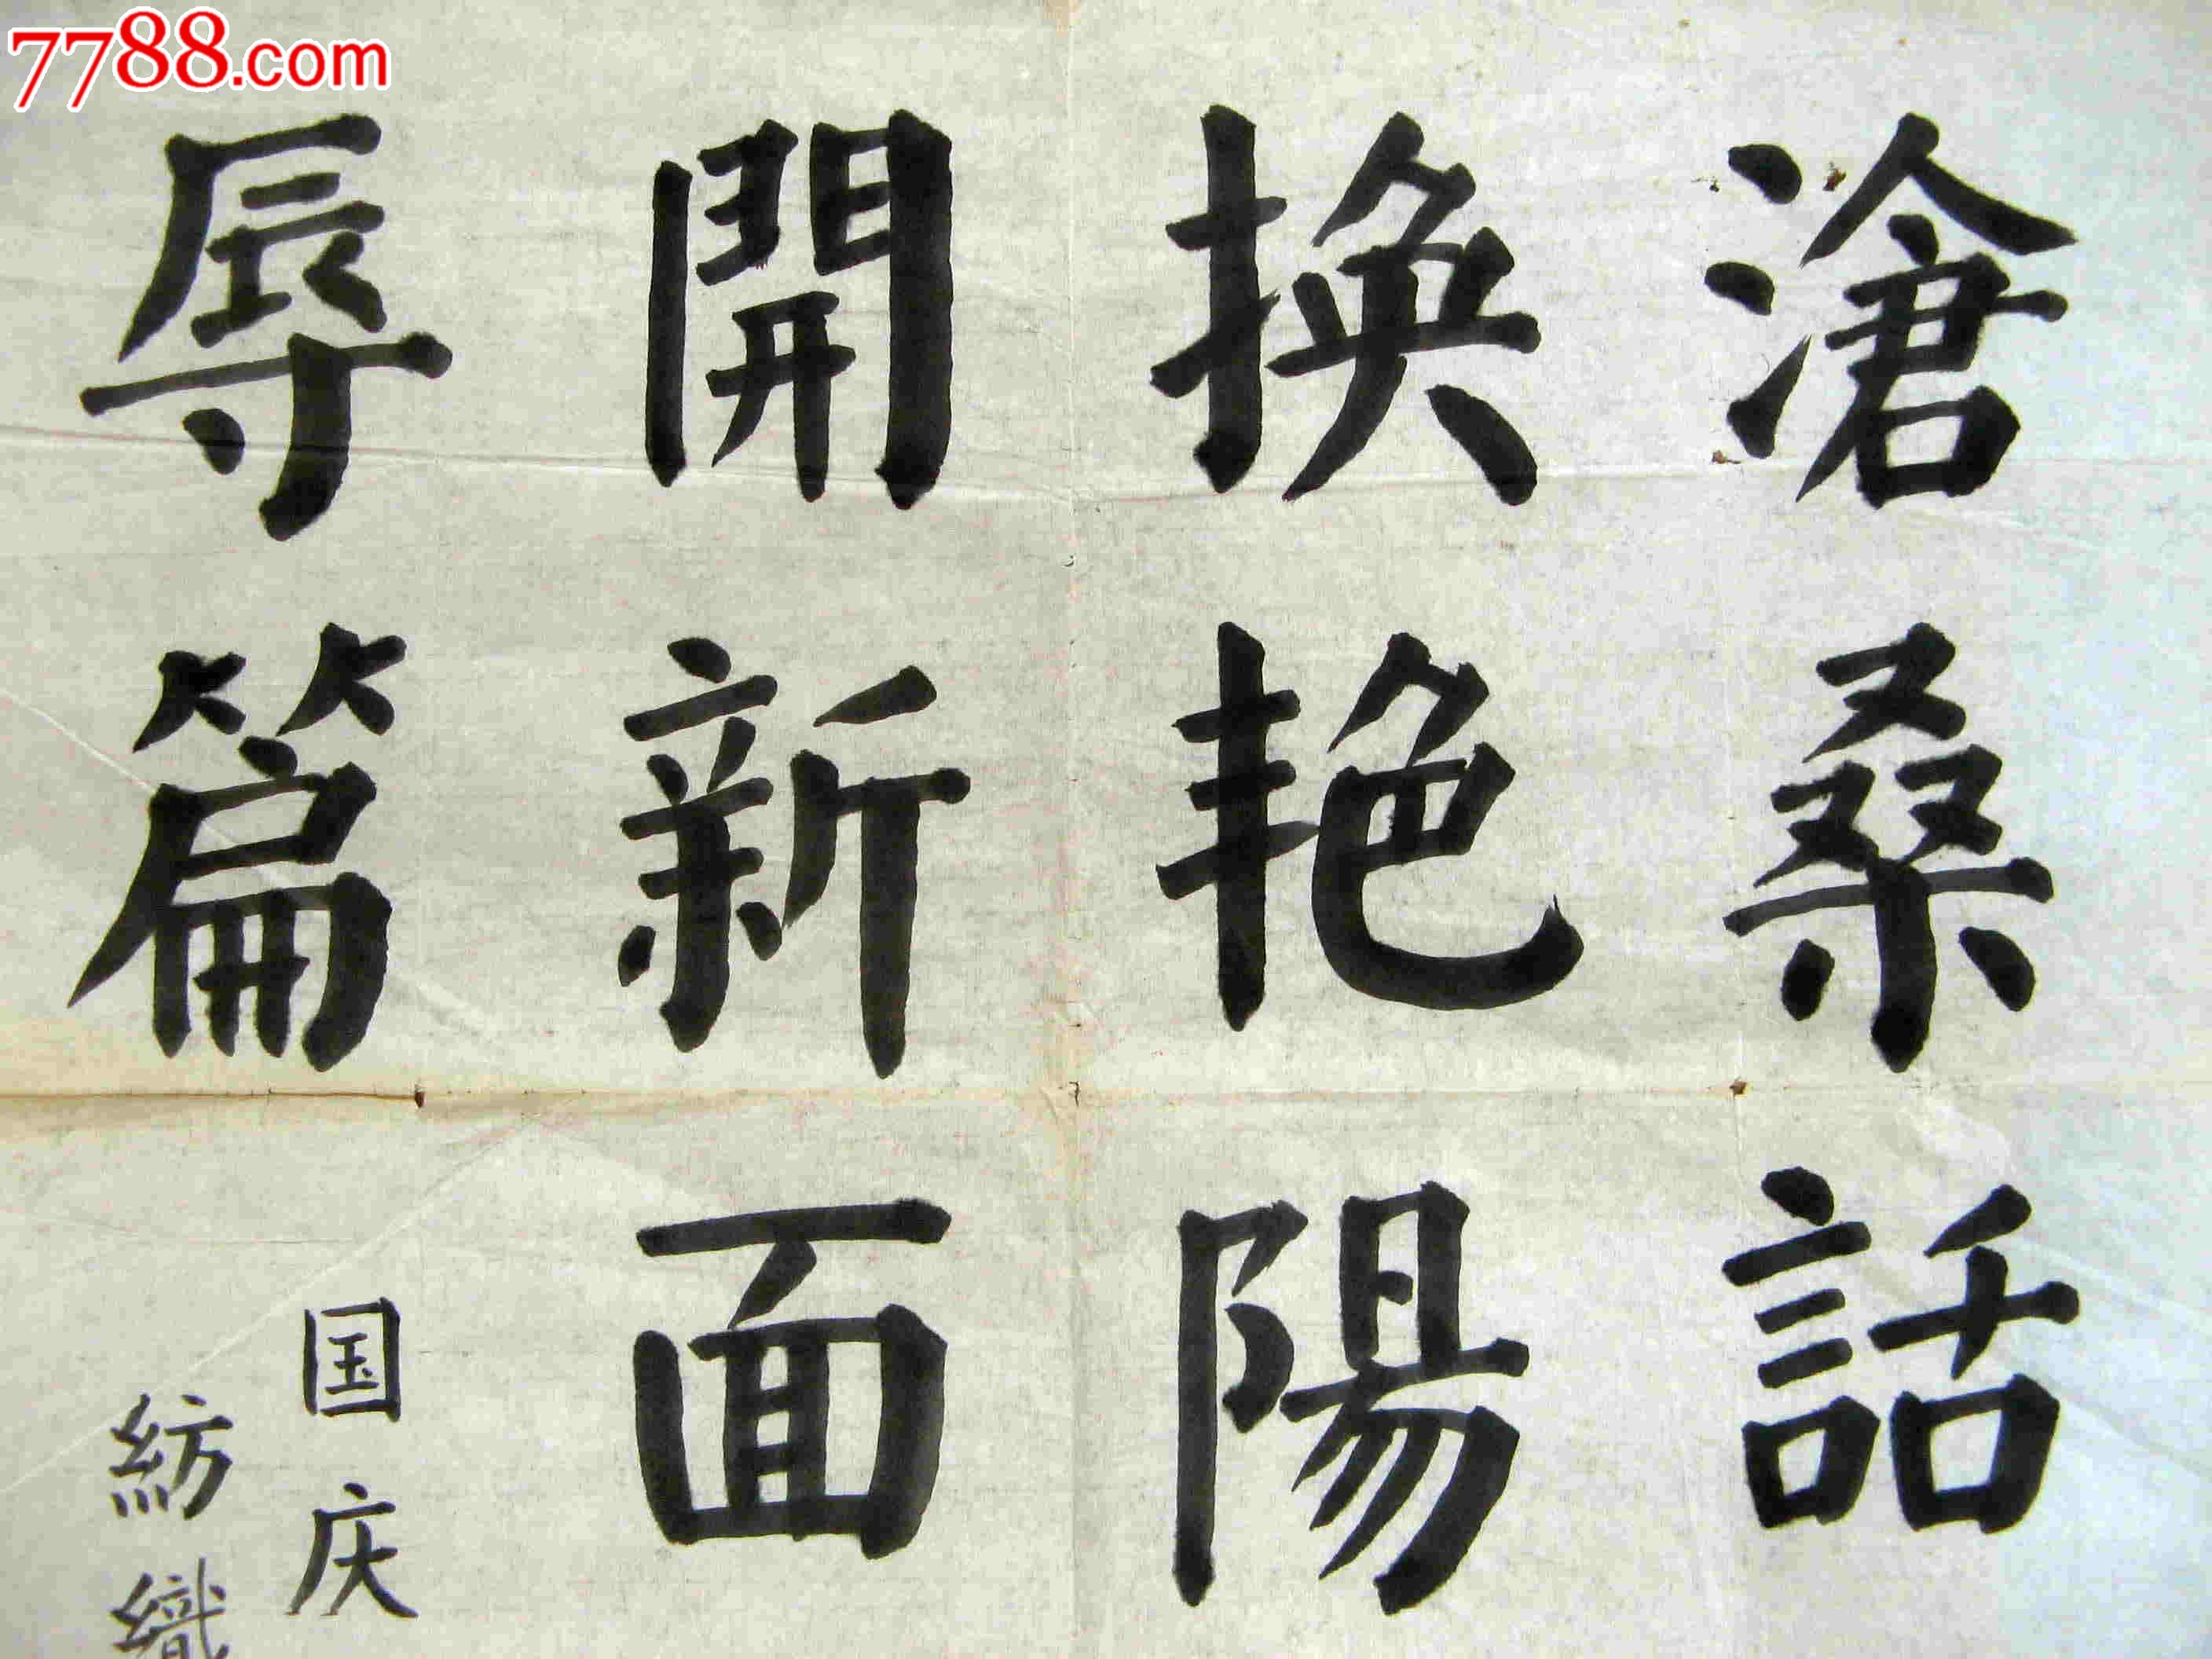 7788.com
滄桑話
換艳陽
開新面
辱篇
国庆
紡織